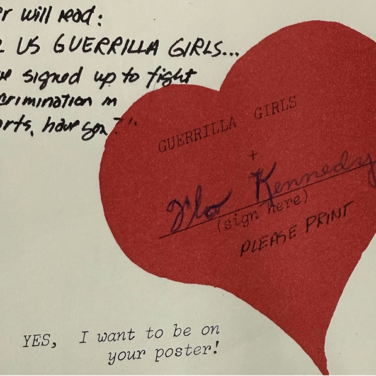 er will read:
US GUERRILLA GIRLS...
signed up to fight
crimination in
arts, have you?"
GUERRILLA GIRLS
+
Flo Kennedy
(sign here)
PLEASE PRINT
YES, I want to be on
your poster!